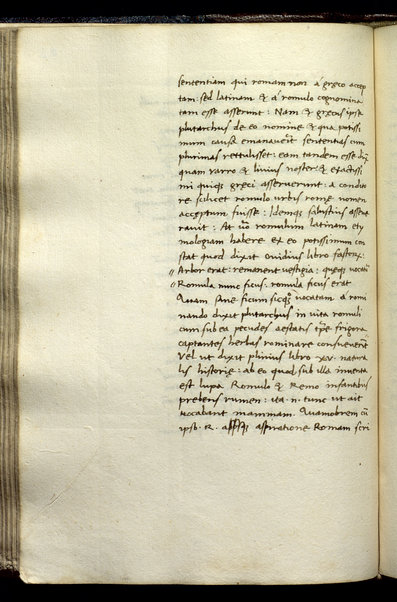 sententiam qui romam non á gręco accep
tam: sed latinam & á romulo cognomina
tam esse asserunt: Nam & gręcus ipse
plutarchus de eo nomine & qua potissi
mum causa emanauerit sententias cum
plurimas rettulisset: eam tandem esse dixit
quam varro & liuius noster & exactissi
mi quique gręci asseruerunt: a condito
re scilicet romulo urbis romę nomen
acceptum fuisse: Idemque salustius asseue
rauit: At uō romulum latinam ety
mologiam habere ex eo potissimum con
stat quod dixit ouidius libro fastorum:
Arbor erat: remanent uestigia: quęque uocatur
Romula nunc ficus. romula ficus erat
Quam sane ficum sicque uocatam a romi
nando dixit plutarchus in uita romuli
cum sub ea pecudes aestatis tpē frigora
captantes herbas rominare consueuerīt
Vel ut dixit plinius libro xv. natura
lis historię: ab eo quod sub illa inuenta
est lupa Romulo & Remo infantibus
prebens rumen: ita .n. tunc ut ait
uocabant mammam. Quamobrem cū
ipse .R. absque aspiratione Romam scri